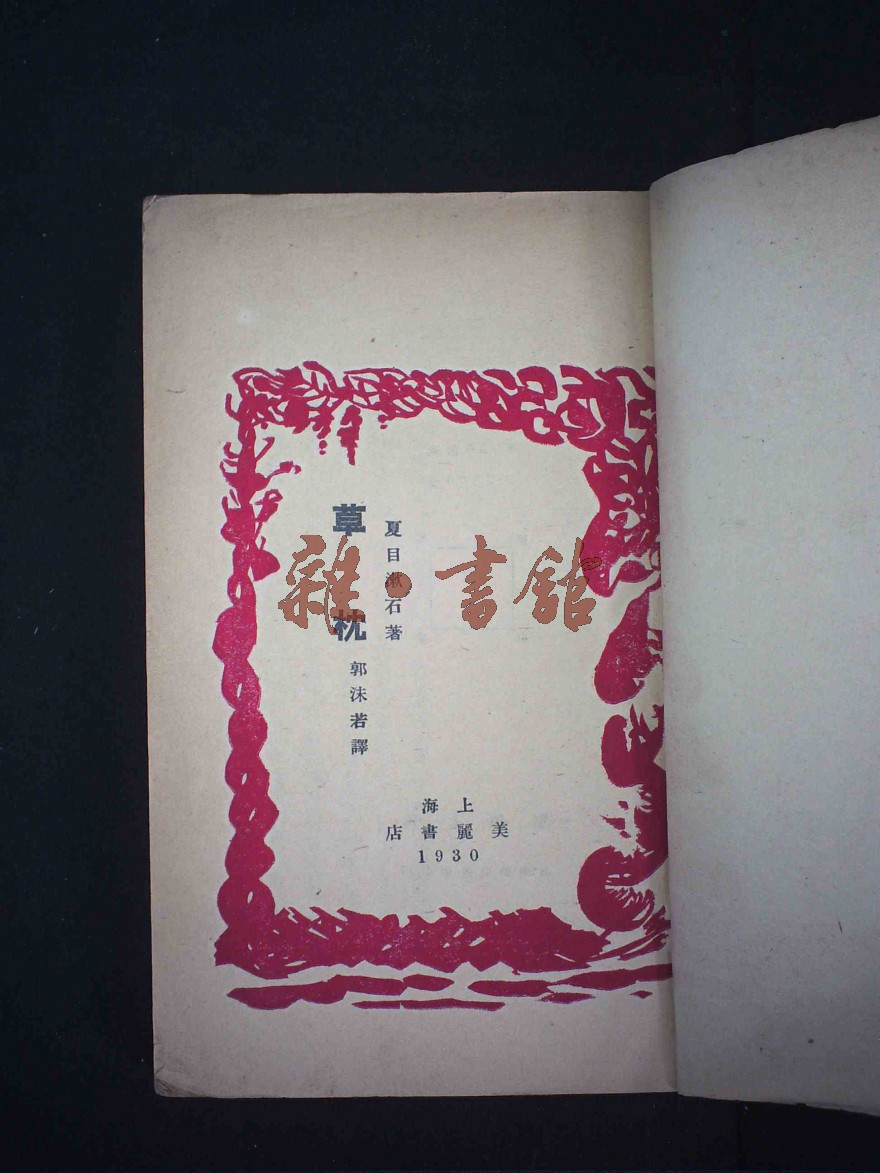 夏目漱石著
草枕
郭沫若譯
上海
美麗書店
1930
雜·書館